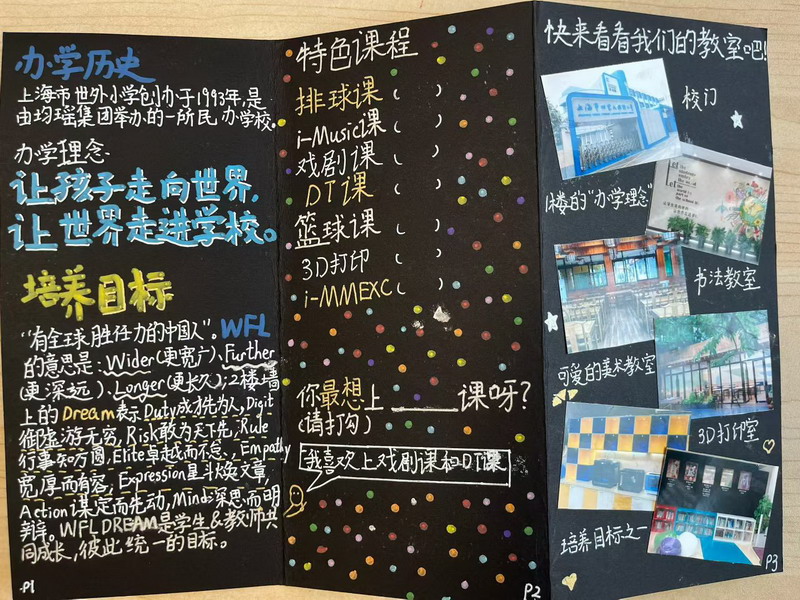 办学历史
上海市世外小学创办于1993年,是
由均瑶集团举办的一所民办学校。
办学理念
让孩子走向世界,
让世界走进学校。
培养目标
“有全球胜任力的中国人”。WFL
的意思是:Wider(更宽广)、Further
(更深远)、Longer(更长久);2楼墙
上的Dream表示Duty成才先为人,Digit
御强游无穷,Risk敢为天下先,Rule
行事知方圆,Elite卓越而不怠,Empathy
宽厚而有容,Expression星斗焕文章,
Action谋定而先动,Minds深思而明
辨。WFLDREAM是学生&教师共
同成长,彼此统一的目标。
P1
特色课程
排球课( )
i-Music课( )
戏剧课( )
DT课( )
篮球课( )
3D打印( )
i-MMEXC( )
你最想上____课呀?
(请打勾)
我喜欢上戏剧课和DT课
P2
快来看看我们的教室吧!
校门
楼的“办学理念”
书法教室
可爱的美术教室
3D打印室
培养目标之一
P3